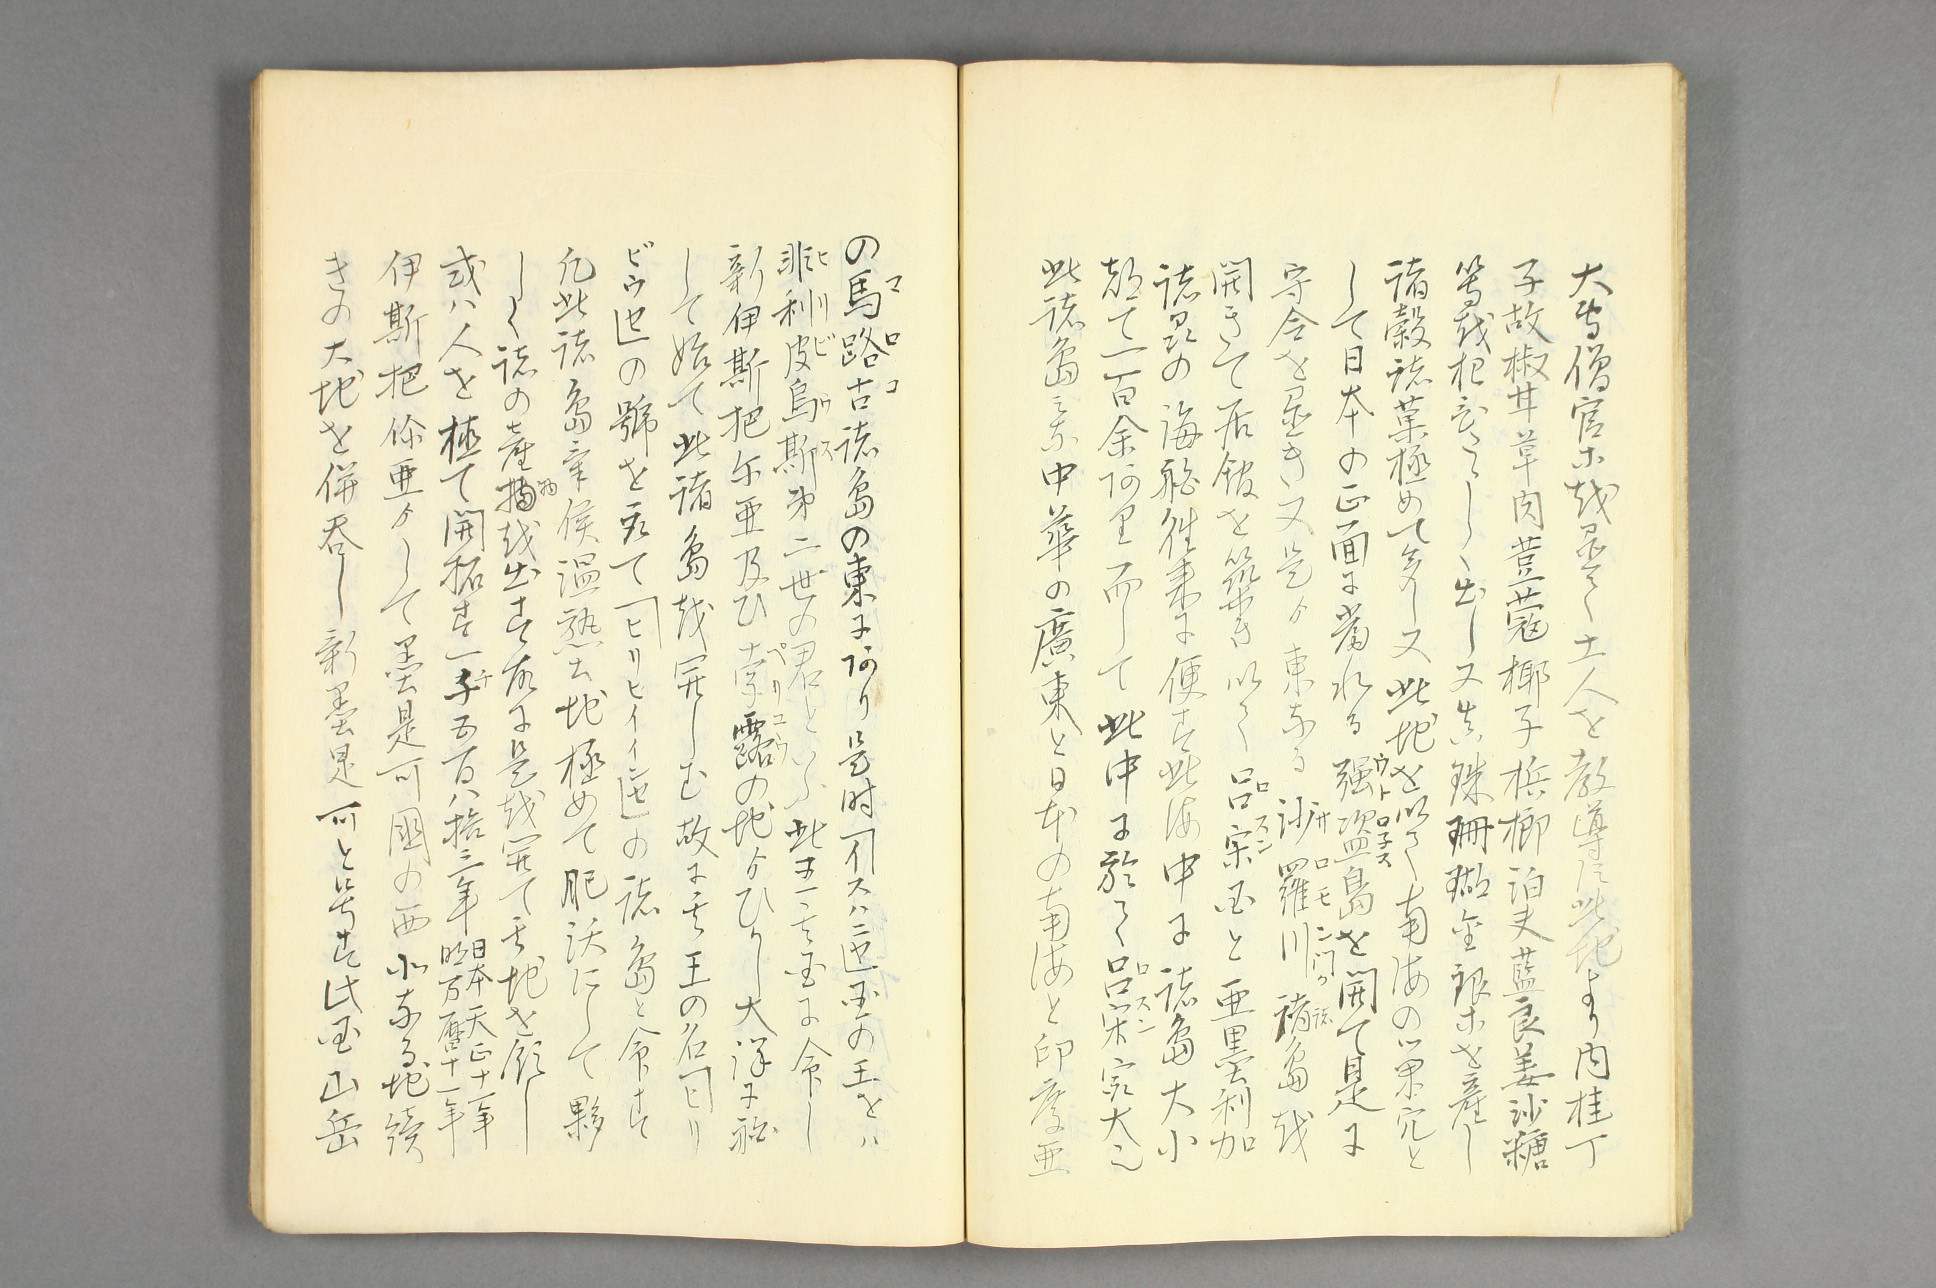 大寺僧官等越置て土人を教導し此地より内桂丁
子故椒甘草肉荳蔲椰子梹榔泊夫藍良姜沙糖
等越出し又真珠珊瑚金銀等を産し
諸穀諸菓極めて多し又此地を以て南海の巣穴と
して日本の正面に當れる強盗島を開て是に
守令を置き又是ゟ東なる沙羅川諸島越
開きて居館を築き以て呂宋国と亜墨利加
諸国の海舶往来に便す此海中に諸島大小
都て一百余阿里而して此中に於て呂宋最大
此諸島ミな中華の廣東と日本の南海と印度亜
の馬路古諸島の東に阿り是時イスハニヤ国の王をハ
非利皮烏斯第二世の君といふ此王其国に命し
新伊斯把尓亜及ひ孛露の地ゟひらし大洋に舶
して始て此諸島越開しむ故に其王の名ヒリ
ビウ也の號を取て ヒリヒイインセ の諸島と命す
凡此諸島気候温熱土地極めて肥沃にして夥
しく諸の産物越出す故に是越開て其地を領し
或ハ人を植て開拓す一千五百八拾三年 日本天正十一年 明万暦十一年
伊斯把你亜ゟして墨是可國の西北なる地續
きの大地を併呑し新墨是可と号す此国山岳